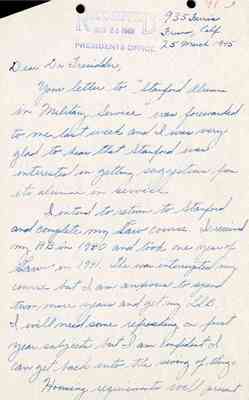 RECEIVED
MAR 28 1945
PRESIDENTS OFFICE
935
Fresno, Calif
25 March 1945
Dear Dr Tresidder,
Your letter to "Stanford Alumni
in Military Service" was forwarded
to me last week and I was very
glad to hear that Stanford was
interested in getting suggestions for
its alumni in service.
I intend to return to Stanford
and complete my Law course. I received
my AB in 1940 and took one year of
Law in 1941. The war interrupted my
course but I am anxious to spend
two more years and get my LLB.
I will need some refreshing on first
year subjects but I am confident I
can get back into the swing of things.
Housing requirements will present